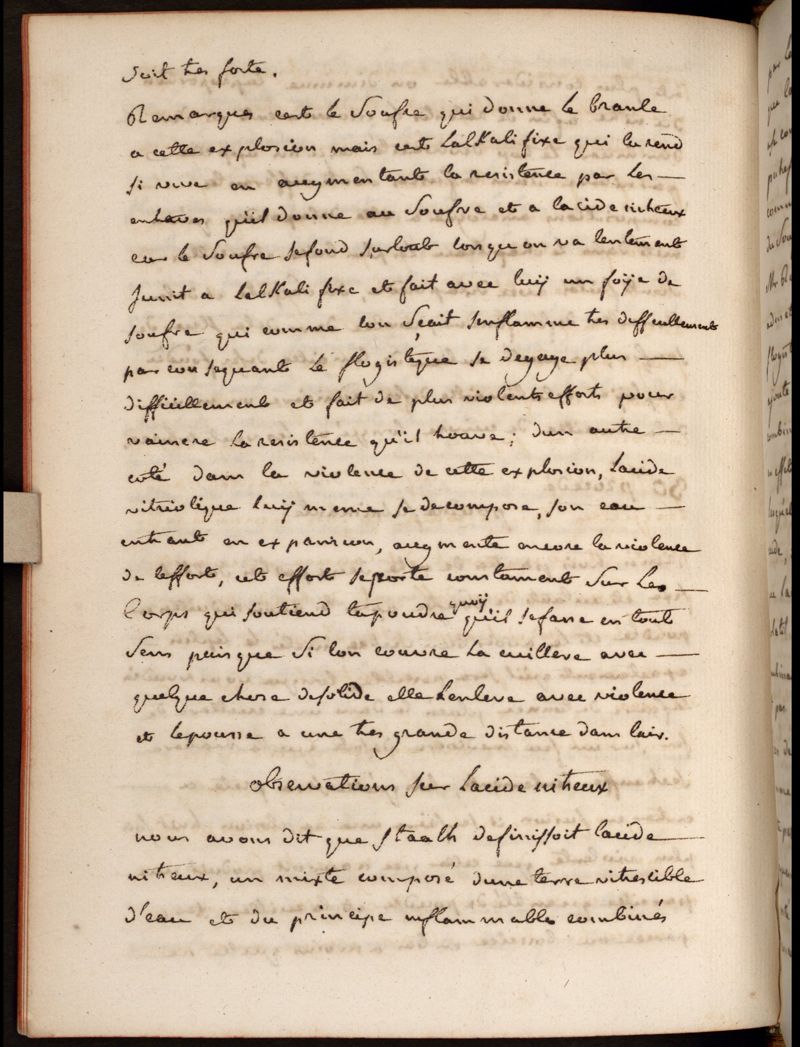 soit tres forte.
Remarques cest le Soufre qui donne le branle
a cette explosion mais cest Lalkali fixe qui la rend
si vive en augmentant la resistence par les
entraves qu'il donne au Soufre et a lacide nitreux
car le Soufre se fond surtout lorsqu'on va lentement
sunit a Lalkali fixe et fait avec luy un foye de
soufre qui comme lon sçait senflamme tres difficillement
par consequant le flogistique se degage plus
difficillement et fait de plus violents efforts pour
vaincre la resistence qu'il trouve; dun autre
coté dans la violence de cette explosion, Lacide
vitriolique luy meme se decompose, son eau
entrant en expansion, augmente encore la violence
de leffort, cet effort se porte constament sur les
Corps qui soutiend la poudre quoy qu'il se fasse en tout
Sens puisque si lon couvre la cuillere avec
quelque chose de solide elle Lenleve avec violence
et le pousse a une tres grande distance dans lair.
observations sur Lacide nitreux
nous avons dit que Staalh definissoit lacide
nitreux, un mixte composé dune terre vitrescible
d'eau et du principe inflammable combinés